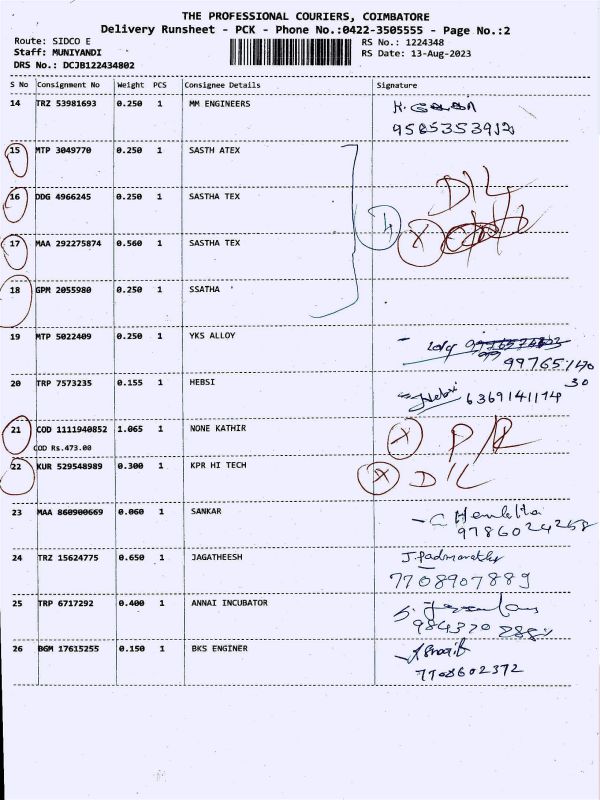 THE PROFESSIONAL COURIERS, COIMBATORE
Delivery Runsheet - PCK - Phone No.:0422-3505555 - Page No.:2
Route: SIDCO E
RS No.: 1224348
Staff: MUNIYANDI
RS Date: 13-Aug-2023
DRS No.: DCJB122434802
S No Consignment No Weight PCS Consignee Details Signature
14 TRZ 53981693 0.250 1 MM ENGINEERS
15 MTP 3049770 0.250 1 SASTH ATEX
D/L
16 DDG 4966245 0.250 1 SASTHA TEX
4 X
17 MAA 292275874 0.560 1 SASTHA TEX
18 GPM 2055980 0.250 1 SSATHA
19 MTP 5022409 0.250 1 YKS ALLOY
20 TRP 7573235 0.155 1 HEBSI
6369141114
21 COD 1111940852 1.065 1 NONE KATHIR X
COD Rs.473.00
22 KUR 529548989 0.300 1 KPR HI TECH X D/L
23 MAA 860900669 0.060 1 SANKAR
9786024258
24 TRZ 15624775 0.650 1 JAGATHEESH
7708907889
25 TRP 6717292 0.400 1 ANNAI INCUBATOR
26 BGM 17615255 0.150 1 BKS ENGINER
7708602372